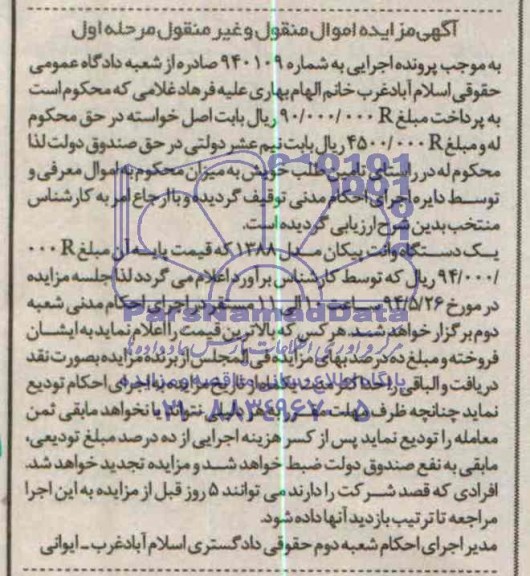 آگهی مزایده اموال منقول وغیر منقول مرحله اول
به موجب پرونده اجرایی به شماره ۹۴۰۱۰۹ صادره از شعبه دادگاه عمومی
حقوقی اسلام آبادغرب خانم الهام بهاری علیه فرهاد غلامی که محکوم است
به پرداخت مبلغ R ۹۰/۰۰۰/۰۰۰ ریال بابت اصل خواسته در حق محکوم
له و مبلغ R ۴۵۰۰/۰۰۰ ریال بابت نیم عشر دولتی در حق صندوق دولت لذا
محکوم له در راستای تامین طلب خویش به میزان محکوم به اموال معرفی و
توسط دایره اجرای احکام مدنی توقیف گردیده و با ارجاع امر به کارشناس
منتخب بدین شرح ارزیابی گردیده است.
یک دستگاه وانت پیکان مدل ۱۳۸۸ که قیمت پایه آن مبلغ R ۰۰۰
/۹۴/۰۰۰ ریال که توسط کارشناس برآورد اعلام می گردد لذا جلسه مزایده
در مورخ ۹۴/۵/۲۶ ساعت ۱۰ الی ۱۱ مستقر در اجرای احکام مدنی شعبه
دوم برگزار خواهد شد. هر کس که بالاترین قیمت را اعلام نماید به ایشان
فروخته و مبلغ ده درصد بهای مزایده فی المجلس از برنده مزایده بصورت نقد
دریافت و الباقی را حداکثر مدت یکماه از تاریخ مزایده به اجرای احکام تودیع
نماید چنانچه ظرف مهلت مقرر به هر دلیلی نتواند یا نخواهد مابقی ثمن
معامله را تودیع نماید پس از کسر هزینه اجرایی از ده درصد مبلغ تودیعی،
مابقی به نفع صندوق دولت ضبط خواهد شد و مزایده تجدید خواهد شد.
افرادی که قصد شرکت را دارند می توانند ۵ روز قبل از مزایده به این اجرا
مراجعه تا ترتیب بازدید آنها داده شود.
مدیر اجرای احکام شعبه دوم حقوقی دادگستری اسلام آبادغرب - ایوانی
ParsNamadData
پایگاه اطلاع رسانی مناقصه و مزایده
۰۲۱-۸۸۳۴۹۶۷۰-۵